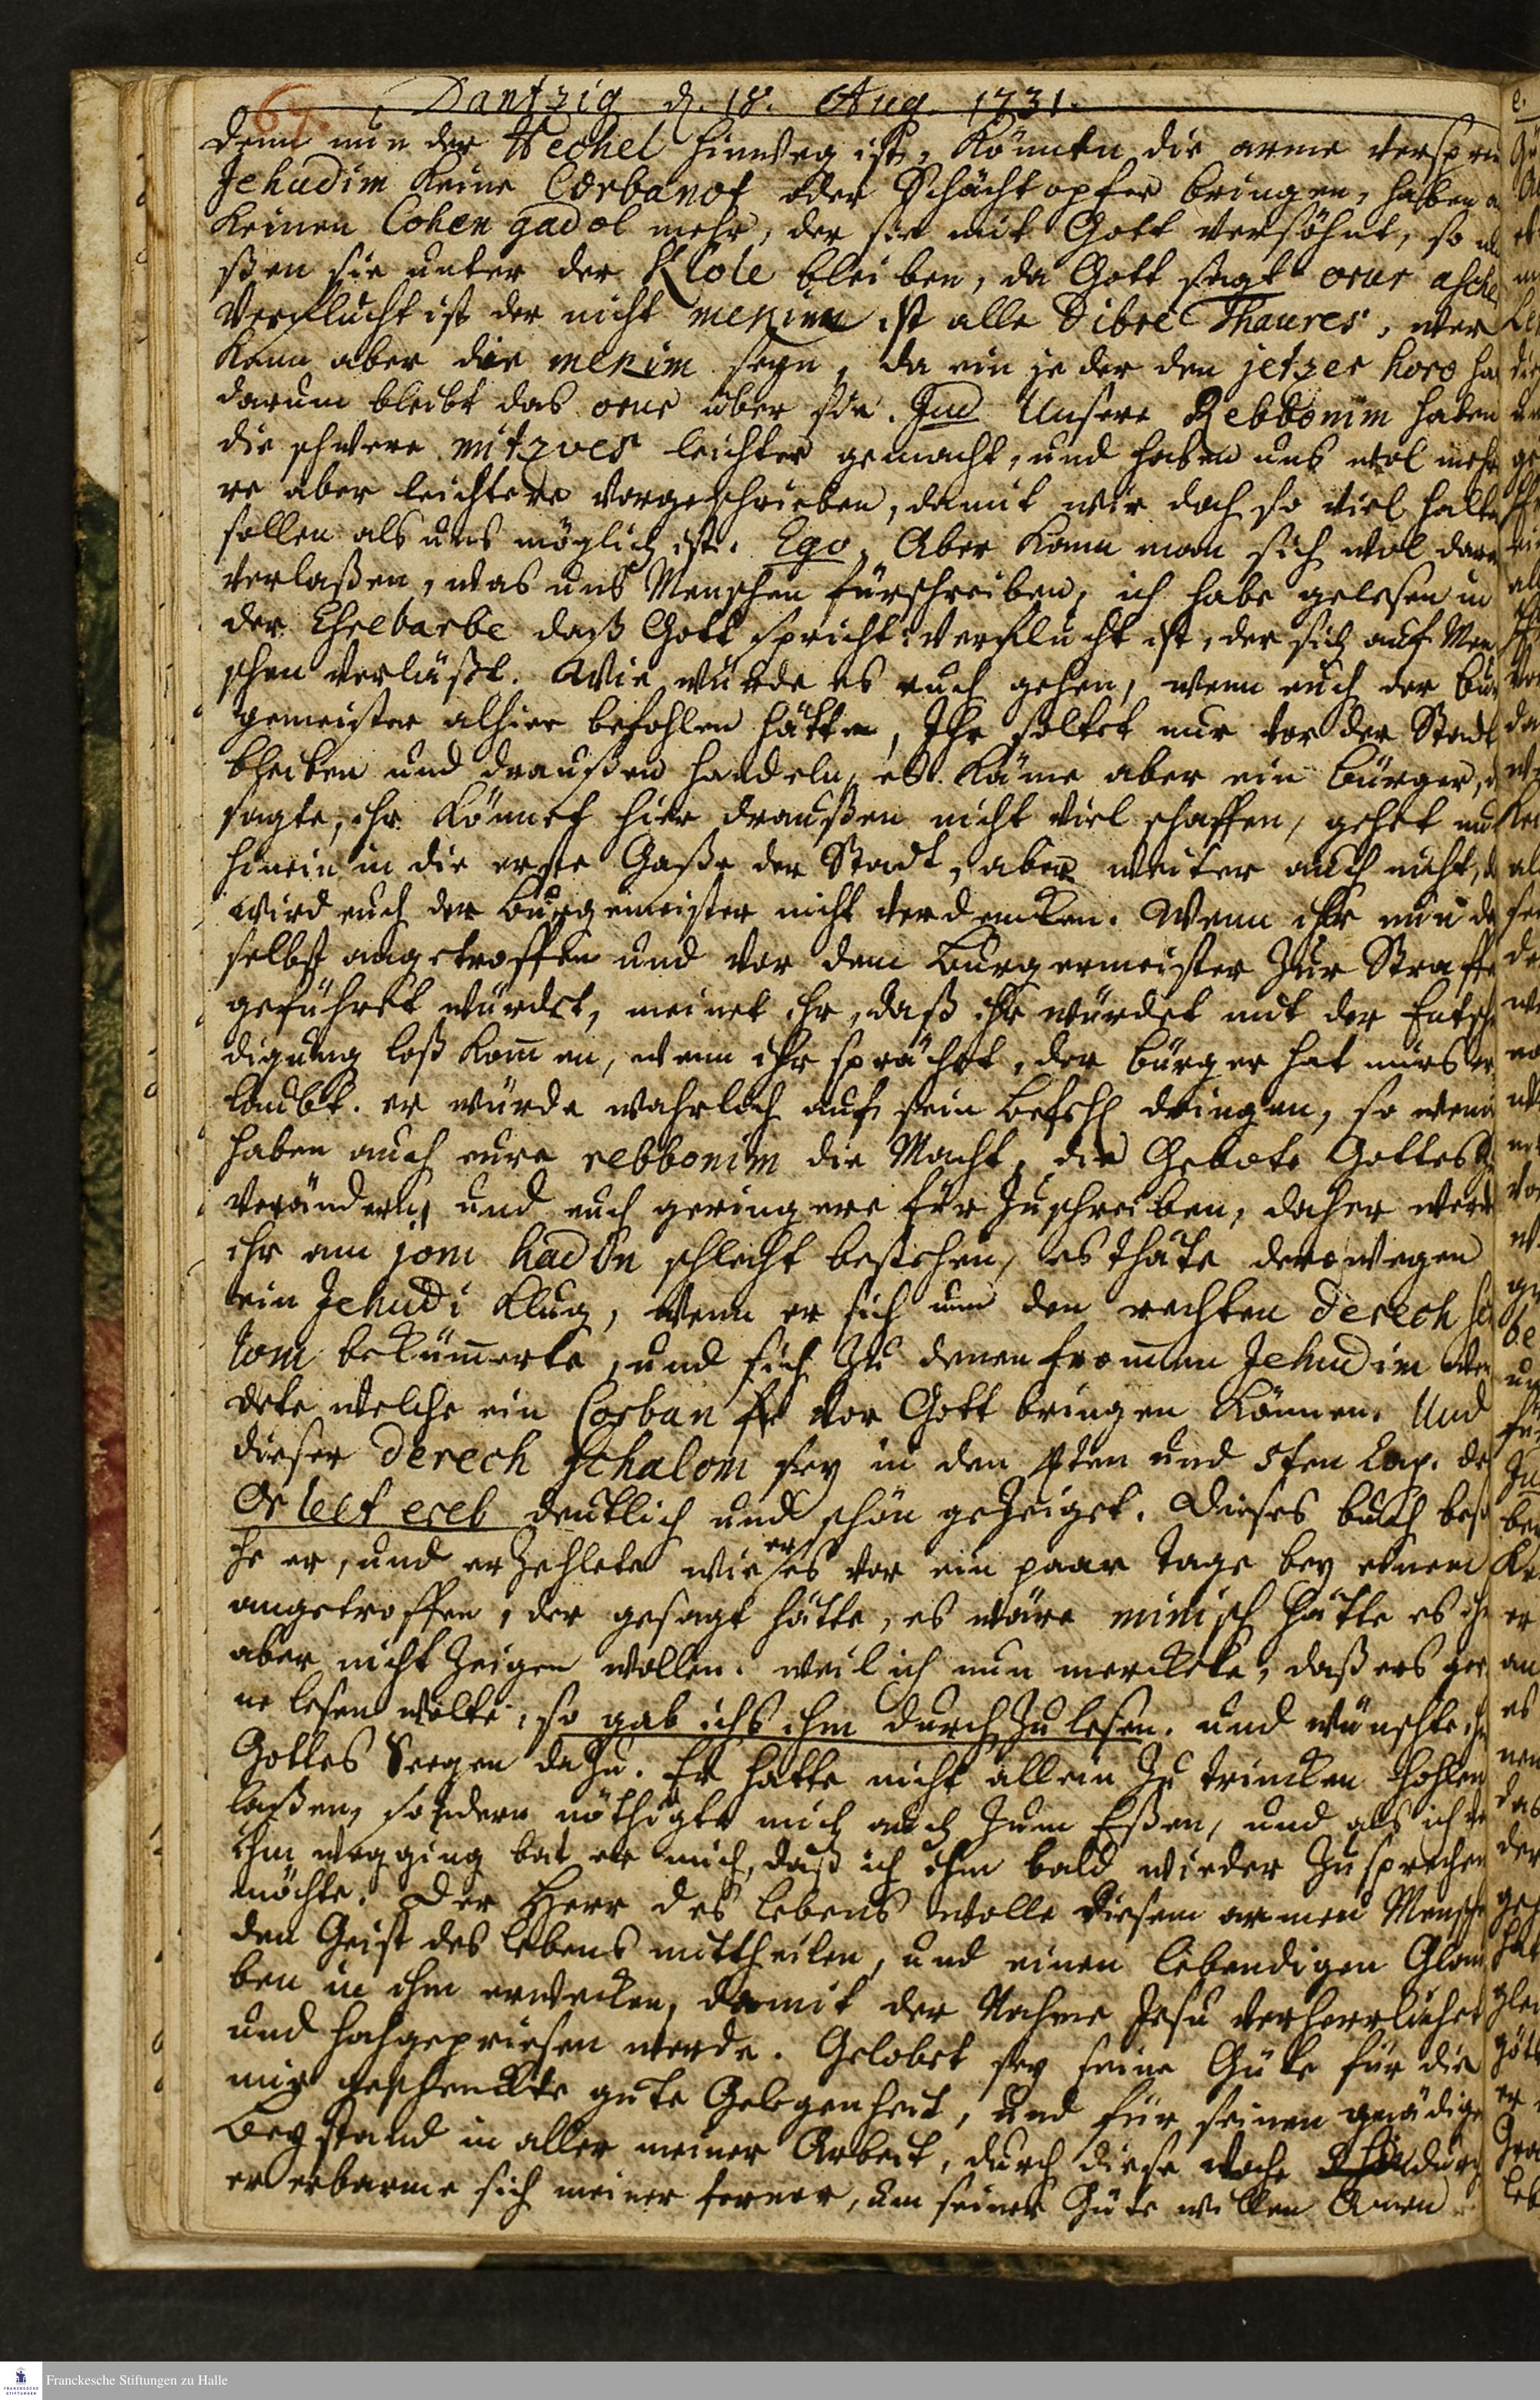 67.
Dantzig d. 18. Aug. 1731.
denn nun der Hechel hinweg ist, könnten die arme verspreu
Jehudim keine Corbanot oder Schächtopfer bringen, haben a
keinen Cohen gadol mehr, der sie mit Gott versöhnt, so m
ßen sie unter der Klole bleiben, da Gott sagt orur asche
Verflucht ist der nicht mekim ist alle Dibre Thaures, wer
kann aber die mekim seyn, da ein jeder den jetzer horo ha
darum bleibt das orur über sie. Jud Unsere Rebbonim haben
die schwere mitzves leichter gemacht, und haben uns wol meh
re aber leichtere vorgeschrieben, damit wir doch so viel halte
sollen als uns möglich ist. Ego. Aber kann man sich wol dara
verlaßen, was uns Menschen fürschreiben, ich habe gelesen in
der Esrebarbe daß Gott spricht: verflucht ist, der sich auf Men
schen verläßt. Wie würde es euch gehen, wenn euch der Bür
gemeister alhier befohlen hätte, Ihr soltet nur vor der Stadt
bleiben und draußen handeln, es käme aber ein Bürger, u
sagte, ihr könnet hier draußen nicht viel schaffen, gehet nu
hinein in die erste Gaße der Stadt, aber weiter auch nicht, d
wird euch der Burgemeister nicht verdencken. Wenn ihr nun da
selbst angetroffen und vor dem Burgermeister zur Straffe
geführet würdet, meinet ihr, daß ihr würdet mit der Entsch
digung loß kommen, wenn ihr sprächet, der Bürger hat mirs er
laubt. er würde wahrlich auf sein Befehl dringen, so weni
haben auch eure rebbonim die Macht, die Gebote Gottes zu
verändern und euch geringere für zuschreiben, daher werd
ihr am jom hadin schlecht bestehen, es thäte derowegen
ein Jehudi klug, wenn er sich um den rechten derech scha
lom bekümmerte, und sich zu denen frommen Jehudim wen
dete welche ein Corban vor Gott bringen können. Und
dieser derech schalom sey in den 4ten und 5ten Cap. de
Or leet ereb deutlich und schön gezeiget. Dieses buch besa
he er, und erzehlete wie er es vor ein paar Tage bey einem
angetroffen, der gesagt hätte, es wäre minisch hätte es ihm
aber nicht zeigen wollen. weil ich nun merckete, daß ers ger
ne lesen wolte, so gab ichs ihm durch zu lesen. und wünschte ihm
Gottes Seegen dazu. Er hatte nicht allein zu trincken hohlen
laßen, sondern nöthigte mich auch zum Eßen, und als ich von
ihm wegging bat er mich, daß ich ihm bald wieder zusprechen
möchte. Der Herr des Lebens wolle diesem armen Mensche
den Geist des Lebens mittheilen, und einen lebendigen Glau
ben in ihm erwecken, damit der Nahme Jesu verherrlichet
und hochgepriesen werde. Gelobet sey seine Güte für die
mir geschenckte gute Gelegenheit, und für seinen gnädige
Beystand in aller meiner Arbeit, durch diese Woche durch
er erbarme sich meiner ferner, um seiner Güte willen Amen
Franckesche Stiftungen zu Halle